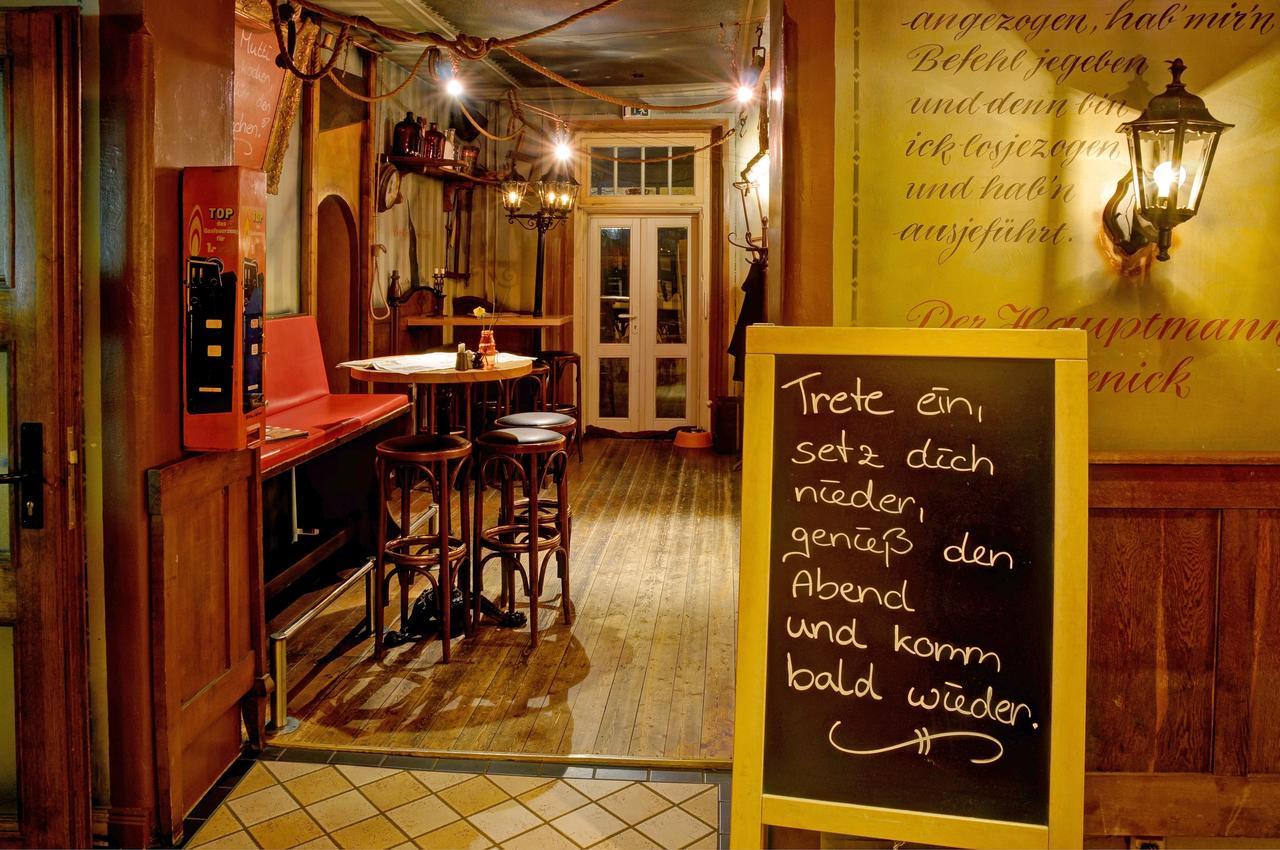 Mutti
TOP
das
für
1.-
angezogen, hab' mir'n
Befehl jegeben
und denn bin
ick losjezogen
und hab'n
ausjeführt.
Der Hauptmann
enick
Trete ein,
setz dich
nieder,
genieß den
Abend
und komm
bald wieder.